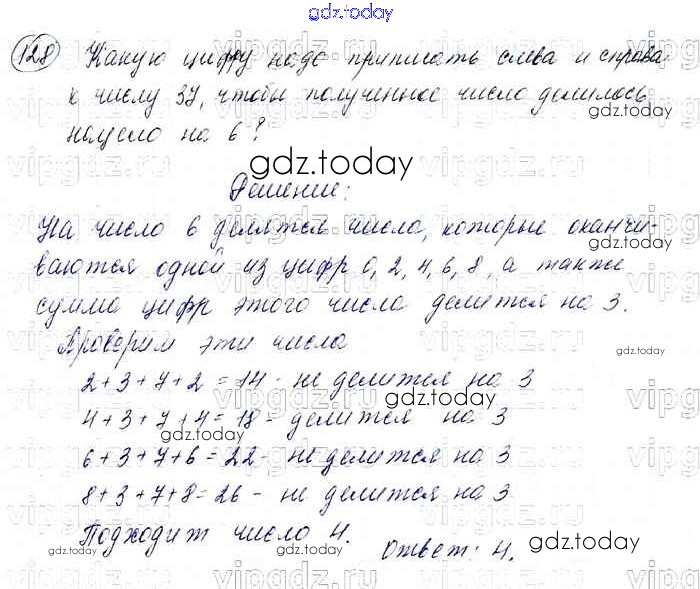 gdz.today
128 Какую цифру надо приписать слева и справа
к числу 37, чтобы полученное число делилось
нацело на 6?
gdz.today
Решение:
На число 6 делятся числа, которые оканчи-
gdz.today
ваются одной из цифр 0, 2, 4, 6, 8, а также
сумма цифр этого числа делится на 3.
Проверим эти числа
gdz.today
2+3+7+2=14 - не делится на 3
4+3+7+4=18 - делится на 3
gdz.today
6+3+7+6=22 - не делится на 3
8+3+7+8=26 - не делится на 3
Подходит число 4.
Ответ: 4.
gdz.today
gdz.today
vipgdz.ru